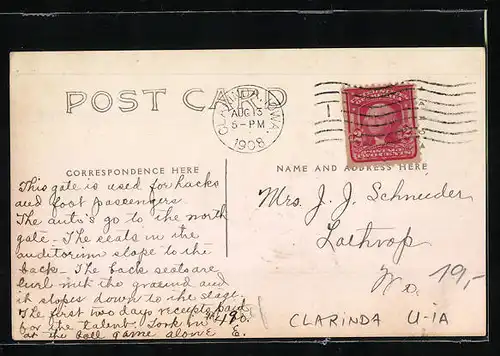 POST CARD
CLARINDA, IOWA.
AUG 13
5-PM
1908
CORRESPONDENCE HERE
NAME AND ADDRESS HERE
This gate is used for hacks
and foot passengers.
The auto's go to the north
gate - The seats in the
auditorium slope to the
back - The back seats are
level with the ground and
it slopes down to the stage.
The first two days receipts paid
for the talent. Took in 190.
at the ball game alone E.
Mrs. J. J. Schneider
Lathrop
Mo.
19,-
CLARINDA U-IA